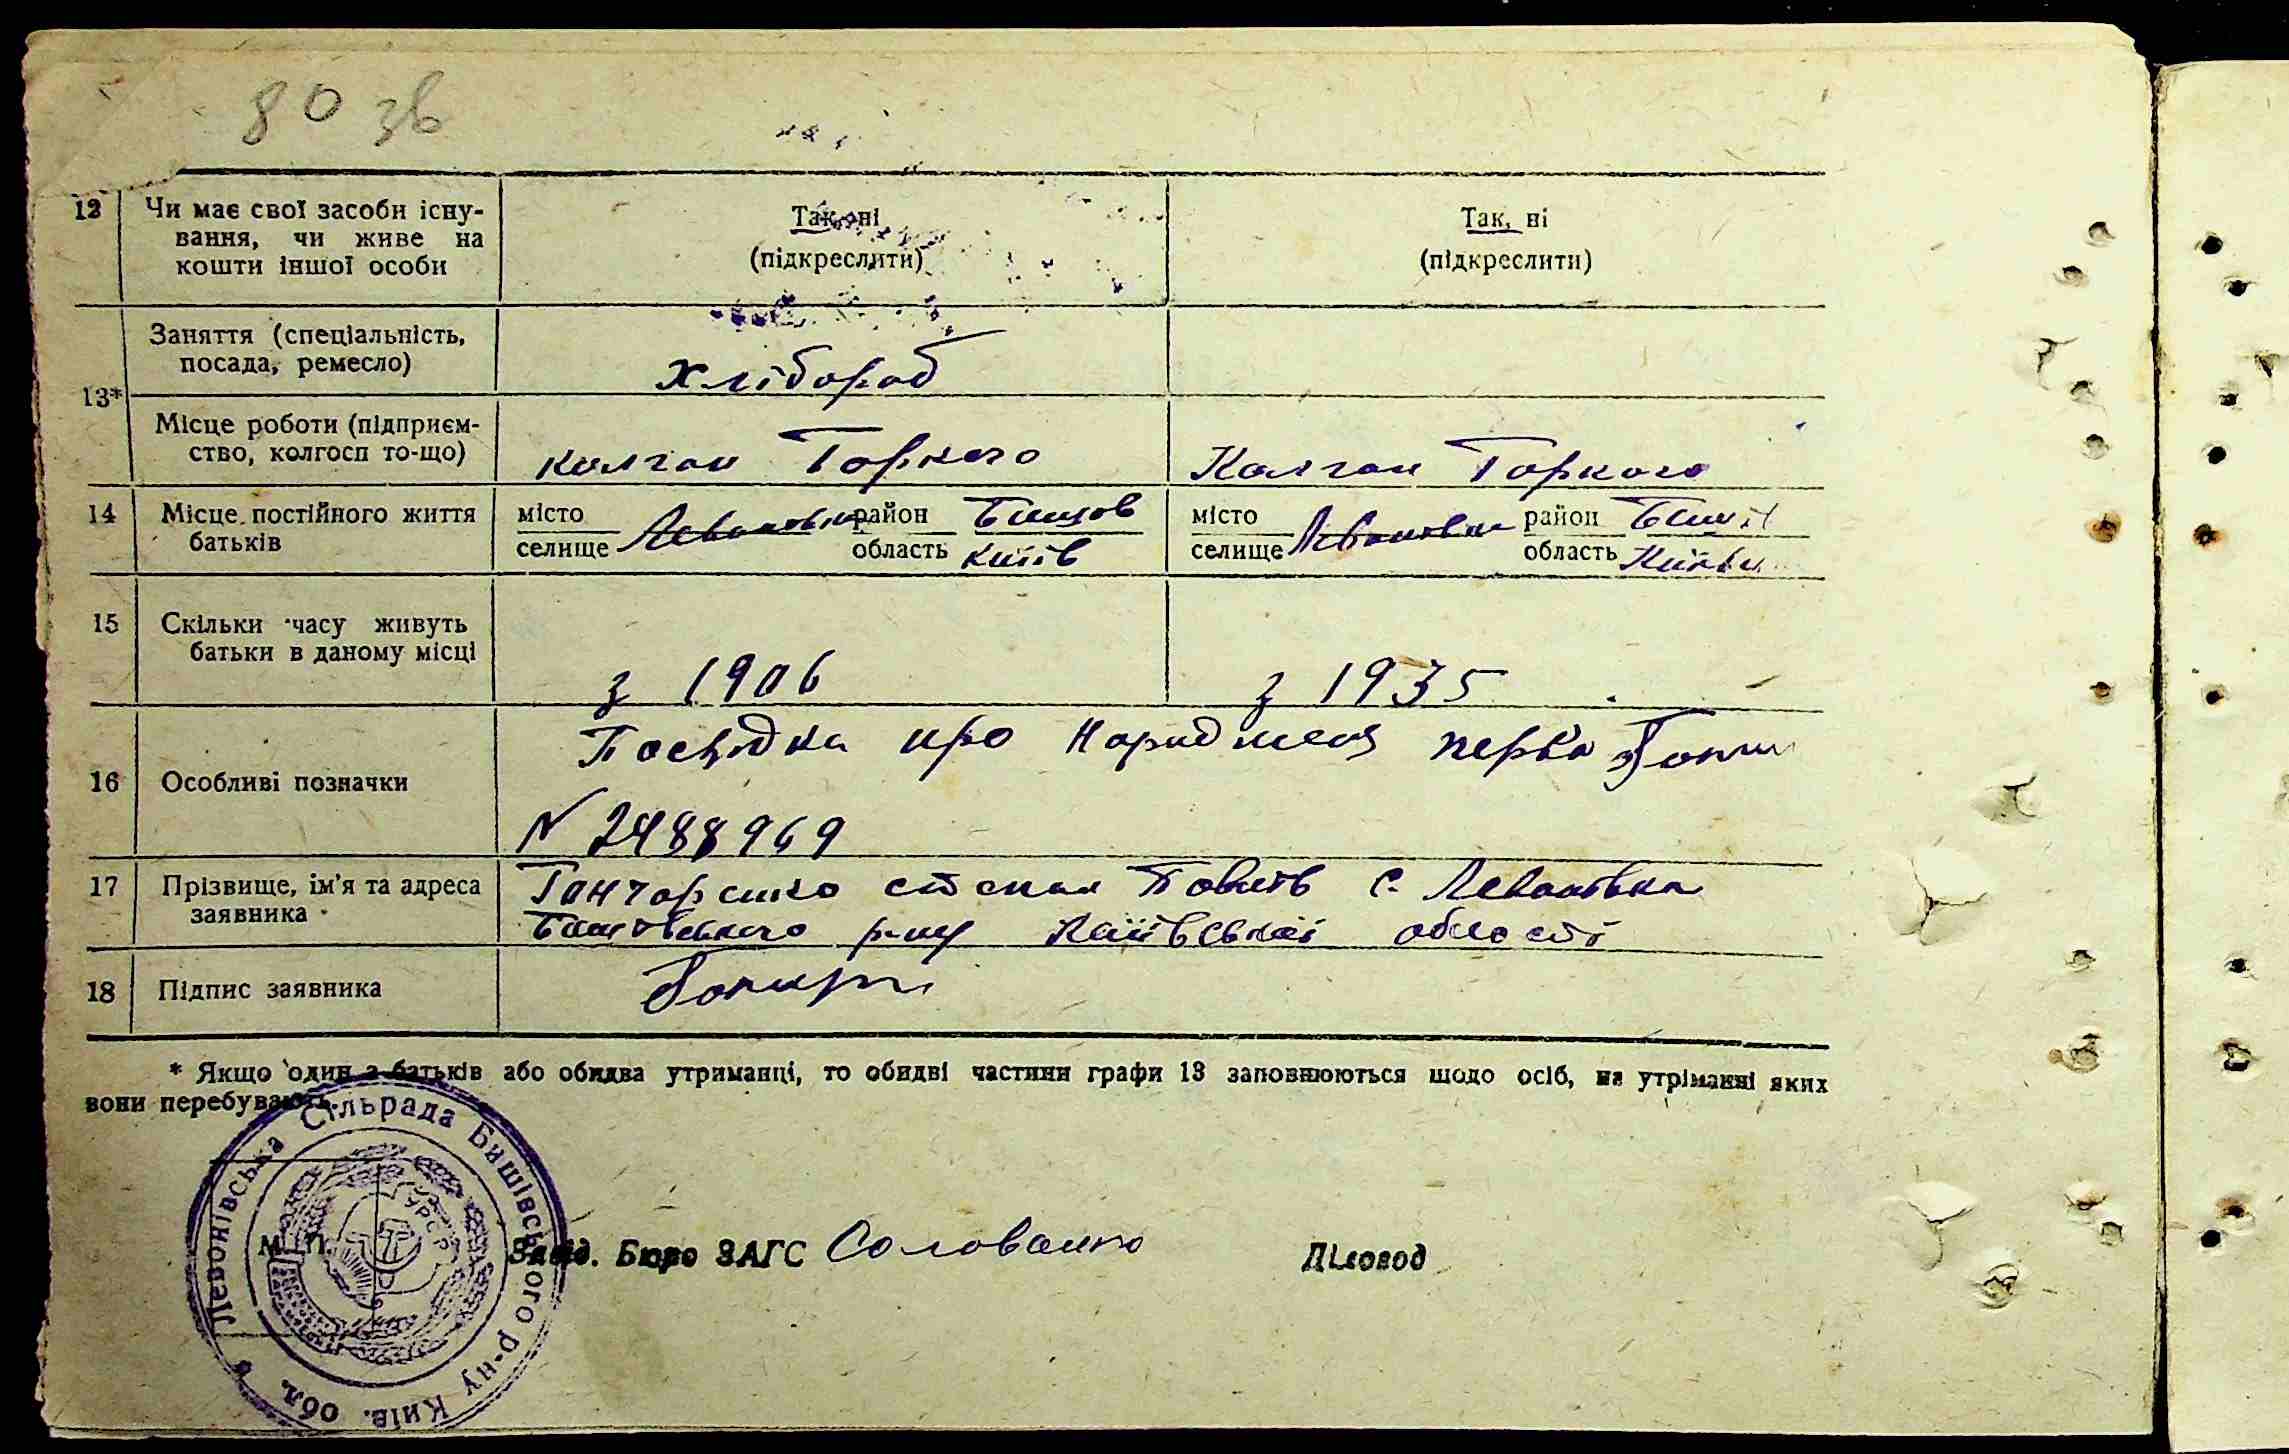 80 зв
12 Чи має свої засоби існу- Так, ні Так, ні
вання, чи живе на (підкреслити) (підкреслити)
кошти іншої особи
Заняття (спеціальність,
посада, ремесло) хлібороб
13*
Місце роботи (підприєм-
ство, колгосп то-що) колгосп Горкого Колгосп Горкого
14 Місце постійного життя місто район Бишов місто район
батьків селище Левонівка область Київ селище Левонівка область
15 Скільки часу живуть
батьки в даному місці з 1906 з 1935
16 Особливі позначки Посвідка про
N 2488969
17 Прізвище, ім'я та адреса Гончаренко с. Левонівка
заявника Бишівського р-ну Київської області
18 Підпис заявника
* Якщо один з батьків або обидва утриманці, то обидві частини графи 13 заповнюються щодо осіб, на утріманні яких
вони перебувають.
Левонівська Сільрада Бишівського р-ну Київ. обл.
УРСР
М. П.
Завід. Бюро ЗАГС Діловод